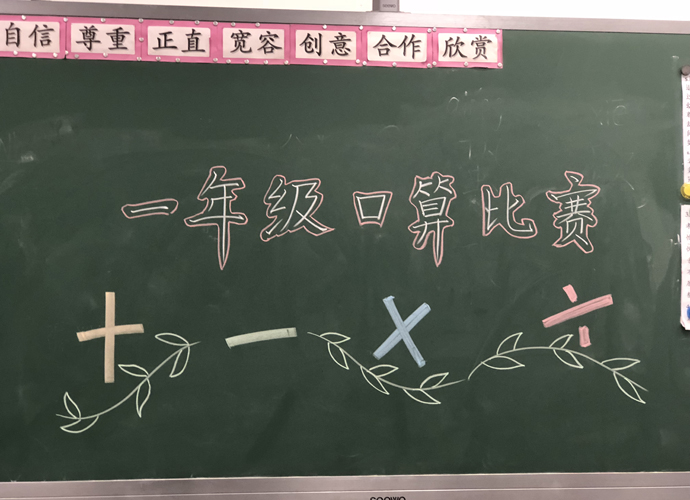 自信 尊重 正直 宽容 创意 合作 欣赏
一年级口算比赛
+ − × ÷
seewo